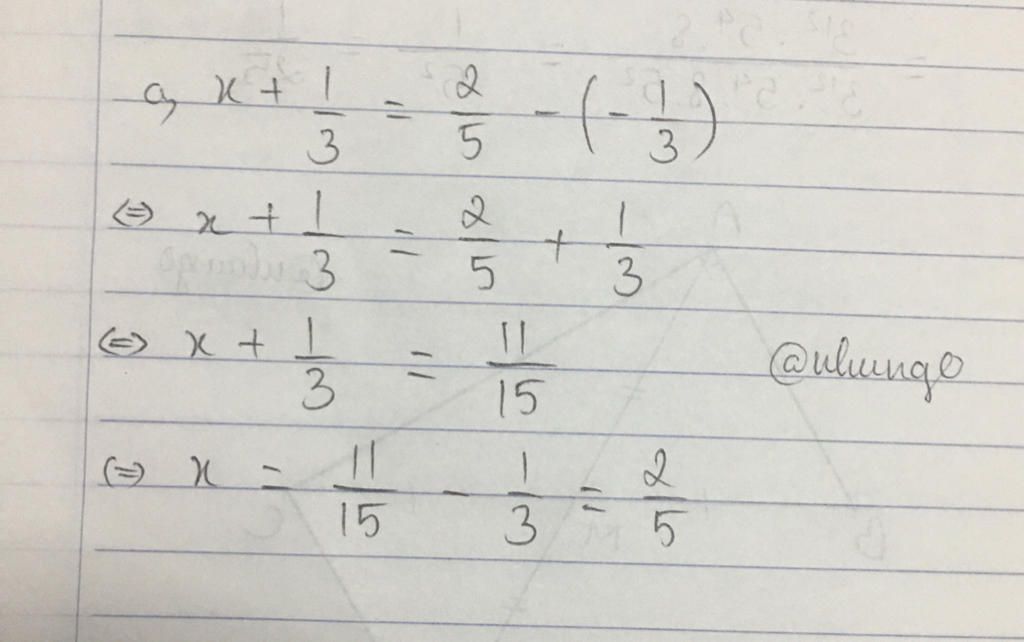 a, x + 1/3 = 2/5 - (-1/3)
⇔ x + 1/3 = 2/5 + 1/3
⇔ x + 1/3 = 11/15
⇔ x = 11/15 - 1/3 = 2/5